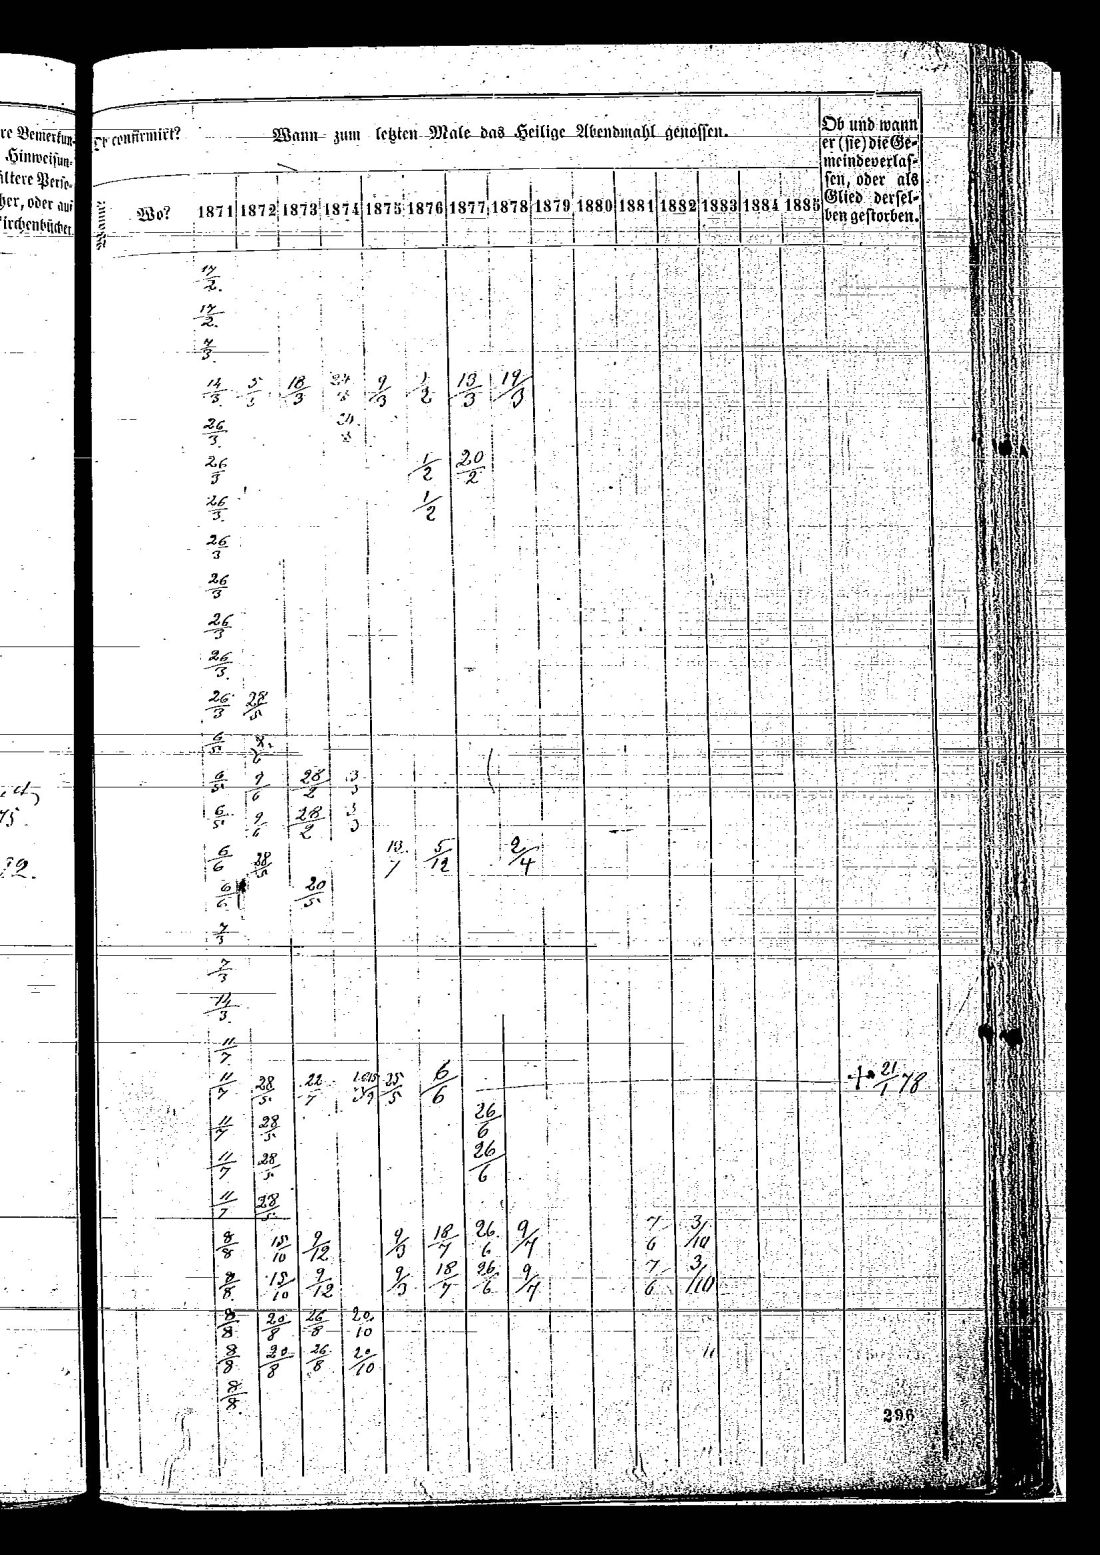 re Bemerkun-
Hinweisun-
ältere Perso-
her, oder auf
irchenbücher.
Ob confirmirt?
Wann zum letzten Male das Heilige Abendmahl genossen.
Ob und wann
er (sie) die Ge-
meinde verlas-
sen, oder als
Glied dersel-
ben gestorben.
Wann?
Wo?
1871 1872 1873 1874 1875 1876 1877 1878 1879 1880 1881 1882 1883 1884 1885
17/2.
17/2.
7/3
14/3. 18/3 9/3 1/2 13/3 19/3
26/3.
26/3 1/2 20/2
26/3. 1/2
26/3
26/3
26/3
26/3.
26/3 28/5
6/5
6/5 9/6 28/2 3/3
6/5 9/6 28/2 3/3
75.
6/6 28/5 13/7 5/12 2/4
72.
6/6 20/5
7/3
7/3
14/3.
11/7
11/7 28/5 22/7 25/5 6/6 † 21/1 78
11/7 28/5 26/6
11/7 28/5 26/6
11/7 28/5
8/8 15/10 9/12 9/3 18/7 26/6 9/4 7/6 3/10
8/8 15/10 9/12 9/3 18/7 26/6 9/4 7/6 3/10
8/8 20/8 26/8 20/10
8/8 20/8 26/8 20/10 "
8/8
296